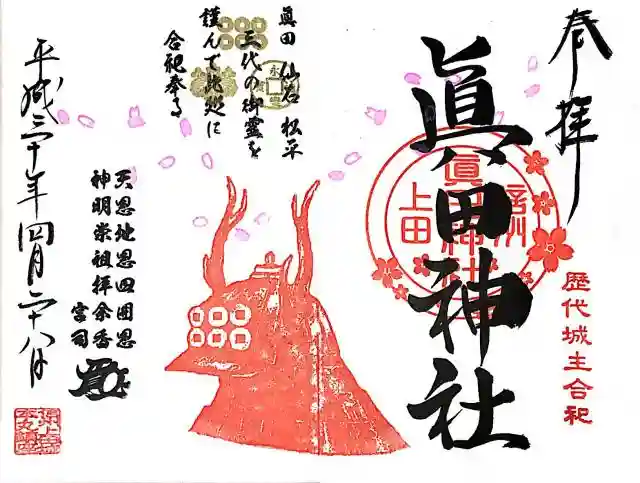 奉拝
歴代城主合祀
眞田神社
信州
眞田神社
上田
眞田 仙石 松平
三代の御霊を
謹んで此処に
合祀奉る
永
天恩地恩四囲恩
神明崇祖拝余香
宮司
平成三十年四月二十八日